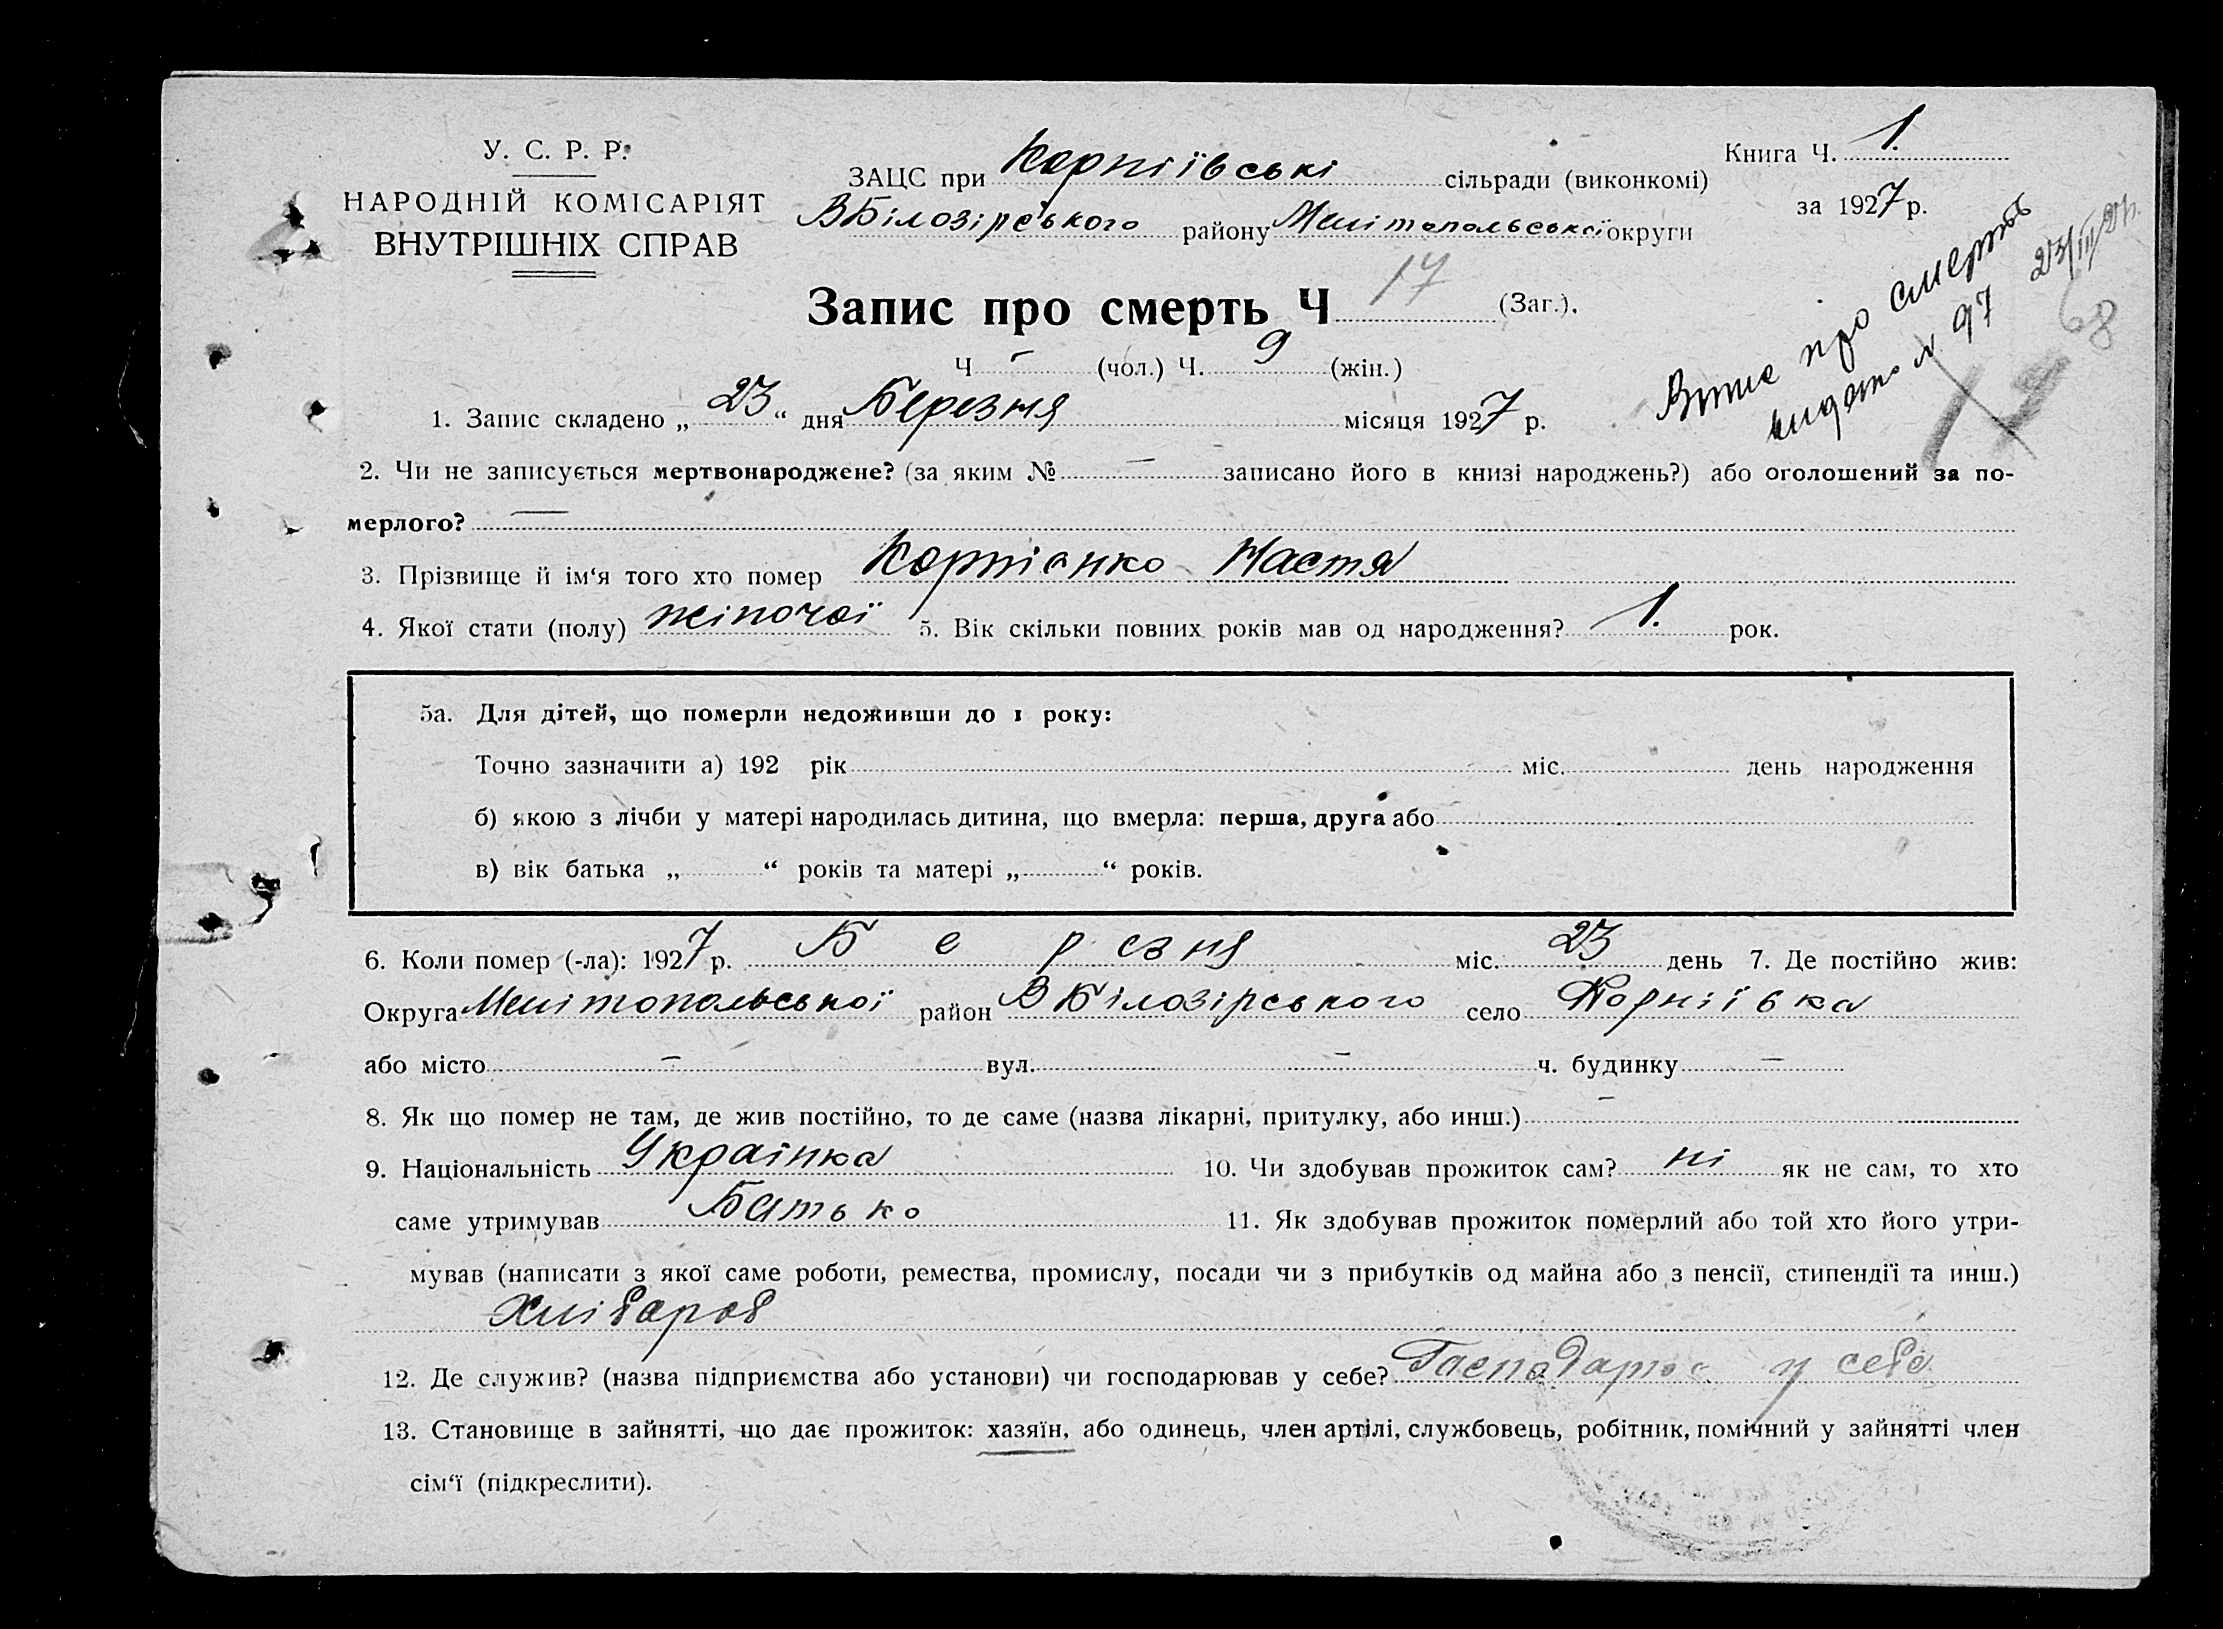 У. С. Р. Р.
НАРОДНІЙ КОМІСАРІЯТ
ВНУТРІШНІХ СПРАВ
ЗАЦС при Корніївські сільради (виконкомі)
ВБілозірського району Мелітопольської округи
Книга Ч. 1.
за 1927 р.
Запис про смерть Ч 17 (Заг.).
Ч - (чол.) Ч. 9 (жін.)
Витяг про смерть
видано № 97 23/III 27р.
68
17
1. Запис складено „23“ дня Березня місяця 1927 р.
2. Чи не записується мертвонароджене? (за яким № — записано його в книзі народжень?) або оголошений за по-
мерлого? —
3. Прізвище й ім‘я того хто помер Корніенко Настя
4. Якої стати (полу) жіночої 5. Вік скільки повних років мав од народження? 1. рок.
5а. Для дітей, що померли недоживши до 1 року:
Точно зазначити а) 192 рік міс. день народження
б) якою з лічби у матері народилась дитина, що вмерла: перша, друга або
в) вік батька „ “ років та матері „ “ років.
6. Коли помер (-ла): 1927 р. Березня міс. 23 день 7. Де постійно жив:
Округа Мелітопольської район ВБілозірського село Корніївка
або місто — вул. — ч. будинку —
8. Як що помер не там, де жив постійно, то де саме (назва лікарні, притулку, або инш.) —
9. Національність Українка 10. Чи здобував прожиток сам? ні як не сам, то хто
саме утримував Батько 11. Як здобував прожиток померлий або той хто його утри-
мував (написати з якої саме роботи, ремества, промислу, посади чи з прибутків од майна або з пенсії, стипендії та инш.)
Хлібароб
12. Де служив? (назва підприємства або установи) чи господарював у себе? Господарює у себе
13. Становище в зайнятті, що дає прожиток: хазяїн, або одинець, член артілі, службовець, робітник, помічний у зайнятті член
сім‘ї (підкреслити).